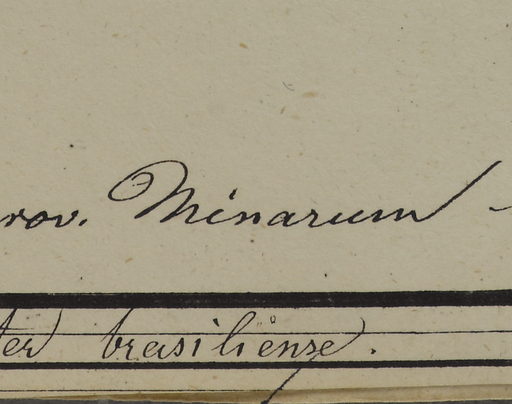 rov. Minarum -
ter brasiliense.